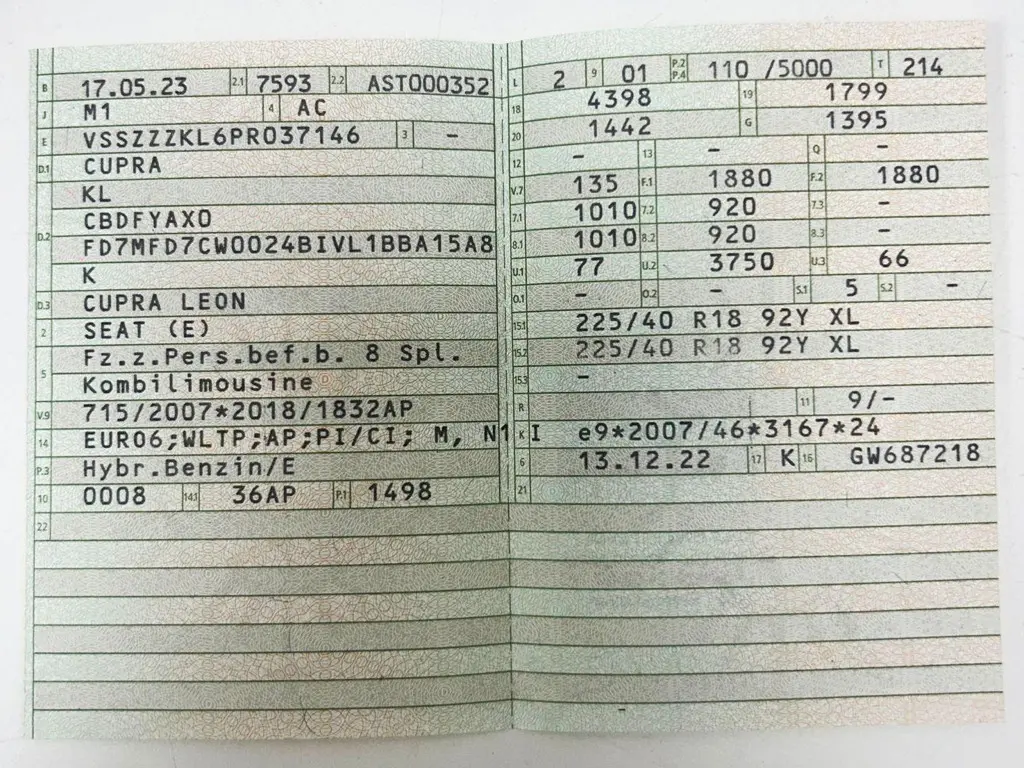 B 17.05.23 2.1 7593 2.2 AST000352
J M1 4 AC
E VSSZZZKL6PR037146 3 -
D.1 CUPRA
KL
CBDFYAX0
D.2 FD7MFD7CW0024BIVL1BBA15A8
K
D.3 CUPRA LEON
2 SEAT (E)
Fz.z.Pers.bef.b. 8 Spl.
5 Kombilimousine
V.9 715/2007*2018/1832AP
14 EURO6;WLTP;AP;PI/CI; M, N1 I
P.3 Hybr.Benzin/E
10 0008 14.1 36AP P.1 1498
22
L 2 9 01 P.2 P.4 110 /5000 T 214
18 4398 19 1799
20 1442 G 1395
12 - 13 - Q -
V.7 135 F.1 1880 F.2 1880
7.1 1010 7.2 920 7.3 -
8.1 1010 8.2 920 8.3 -
U.1 77 U.2 3750 U.3 66
O.1 - O.2 - S.1 5 S.2 -
15.1 225/40 R18 92Y XL
15.2 225/40 R18 92Y XL
15.3 -
R 11 9/-
K e9*2007/46*3167*24
6 13.12.22 17 K 16 GW687218
21